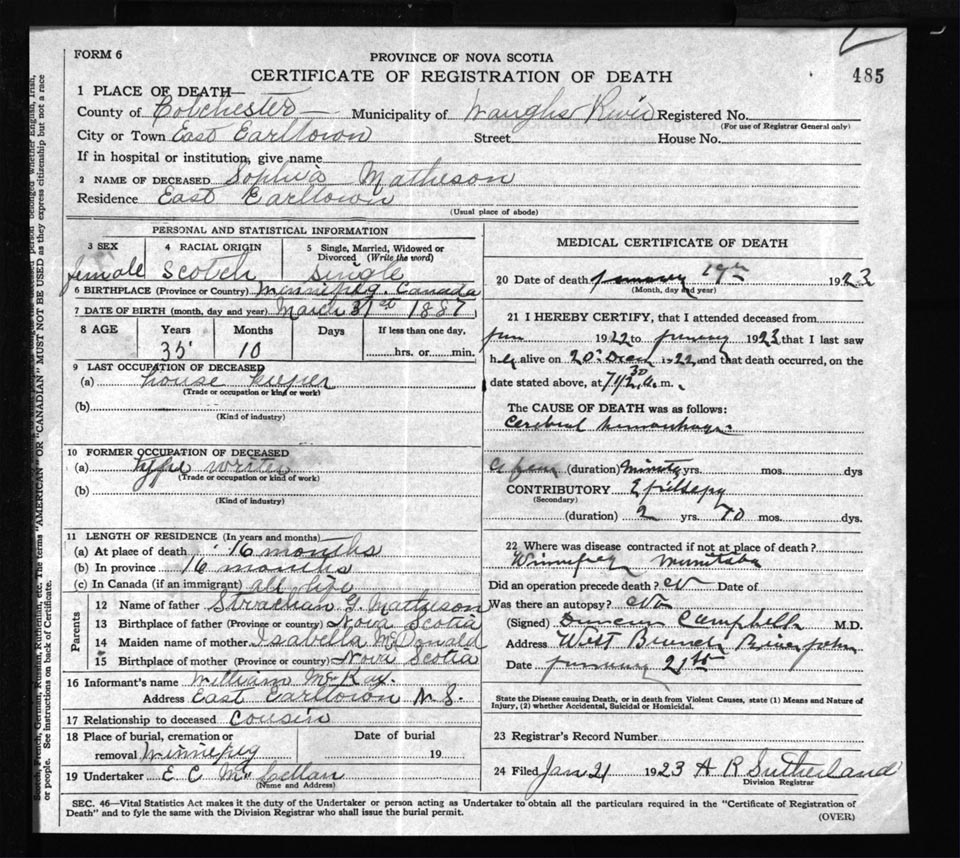 FORM 6
PROVINCE OF NOVA SCOTIA
CERTIFICATE OF REGISTRATION OF DEATH
485
1 PLACE OF DEATH—
County of Colchester Municipality of Waughs River Registered No.
(For use of Registrar General only)
City or Town East Earltown Street House No.
If in hospital or institution, give name
2 NAME OF DECEASED Sophia Matheson
Residence East Earltown
(Usual place of abode)
PERSONAL AND STATISTICAL INFORMATION
3 SEX 4 RACIAL ORIGIN 5 Single, Married, Widowed or Divorced (Write the word)
female Scotch Single
6 BIRTHPLACE (Province or Country) Winnipeg. Canada
7 DATE OF BIRTH (month, day and year) March 31st 1887
8 AGE Years Months Days If less than one day,
35 10 hrs. or min.
9 LAST OCCUPATION OF DECEASED
(a) house keeper
(Trade or occupation or kind or work)
(b)
(Kind of industry)
10 FORMER OCCUPATION OF DECEASED
(a) type writer
(Trade or occupation or kind of work)
(b)
(Kind of industry)
11 LENGTH OF RESIDENCE (In years and months)
(a) At place of death 16 months
(b) In province 16 months
(c) In Canada (if an immigrant) all life
Parents
12 Name of father Strachan G. Matheson
13 Birthplace of father (Province or country) Nova Scotia
14 Maiden name of mother Isabella McDonald
15 Birthplace of mother (Province or country) Nova Scotia
16 Informant's name William McKay.
Address East Earltown N S.
17 Relationship to deceased Cousin
18 Place of burial, cremation or Date of burial
removal Winnipeg 19
19 Undertaker E C McLellan
(Name and Address)
MEDICAL CERTIFICATE OF DEATH
20 Date of death January 19th 1923
(Month, day and year)
21 I HEREBY CERTIFY, that I attended deceased from
1922 to January 1923 that I last saw
her alive on 20th 1922, and that death occurred, on the
date stated above, at 7 a.m.
The CAUSE OF DEATH was as follows:
Cerebral hemorrhage
a few (duration) minutes yrs. mos. dys
CONTRIBUTORY Epilepsy
(Secondary)
(duration) 2 yrs. mos. dys.
22 Where was disease contracted if not at place of death?
Winnipeg Manitoba
Did an operation precede death? No Date of
Was there an autopsy? No
(Signed) Duncan Campbell M.D.
Address West Branch River John
Date January 21st
State the Disease causing Death, or in death from Violent Causes, state (1) Means and Nature of
Injury, (2) whether Accidental, Suicidal or Homicidal.
23 Registrar's Record Number
24 Filed Jan 21 1923 A R Sutherland
Division Registrar
SEC. 46—Vital Statistics Act makes it the duty of the Undertaker or person acting as Undertaker to obtain all the particulars required in the "Certificate of Registration of
Death" and to fyle the same with the Division Registrar who shall issue the burial permit.
(OVER)
person belonged whether English, Irish,
Scotch, French, German, Russian, Ruthenian, etc. The terms "AMERICAN" OR "CANADIAN" MUST NOT BE USED as they express citizenship but not a race
or people. See instructions on back of Certificate.